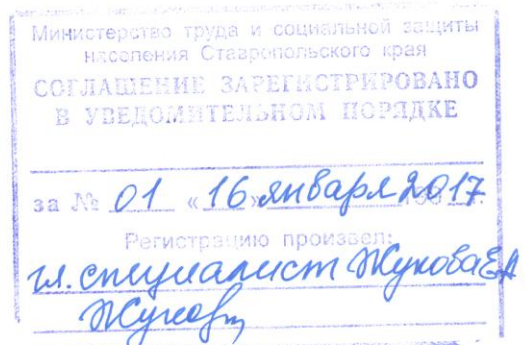 Министерство труда и социальной защиты
населения Ставропольского края
СОГЛАШЕНИЕ ЗАРЕГИСТРИРОВАНО
В УВЕДОМИТЕЛЬНОМ ПОРЯДКЕ
за № 01 «16» января 2017 г.
Регистрацию произвел:
гл. специалист Жукова ЕА